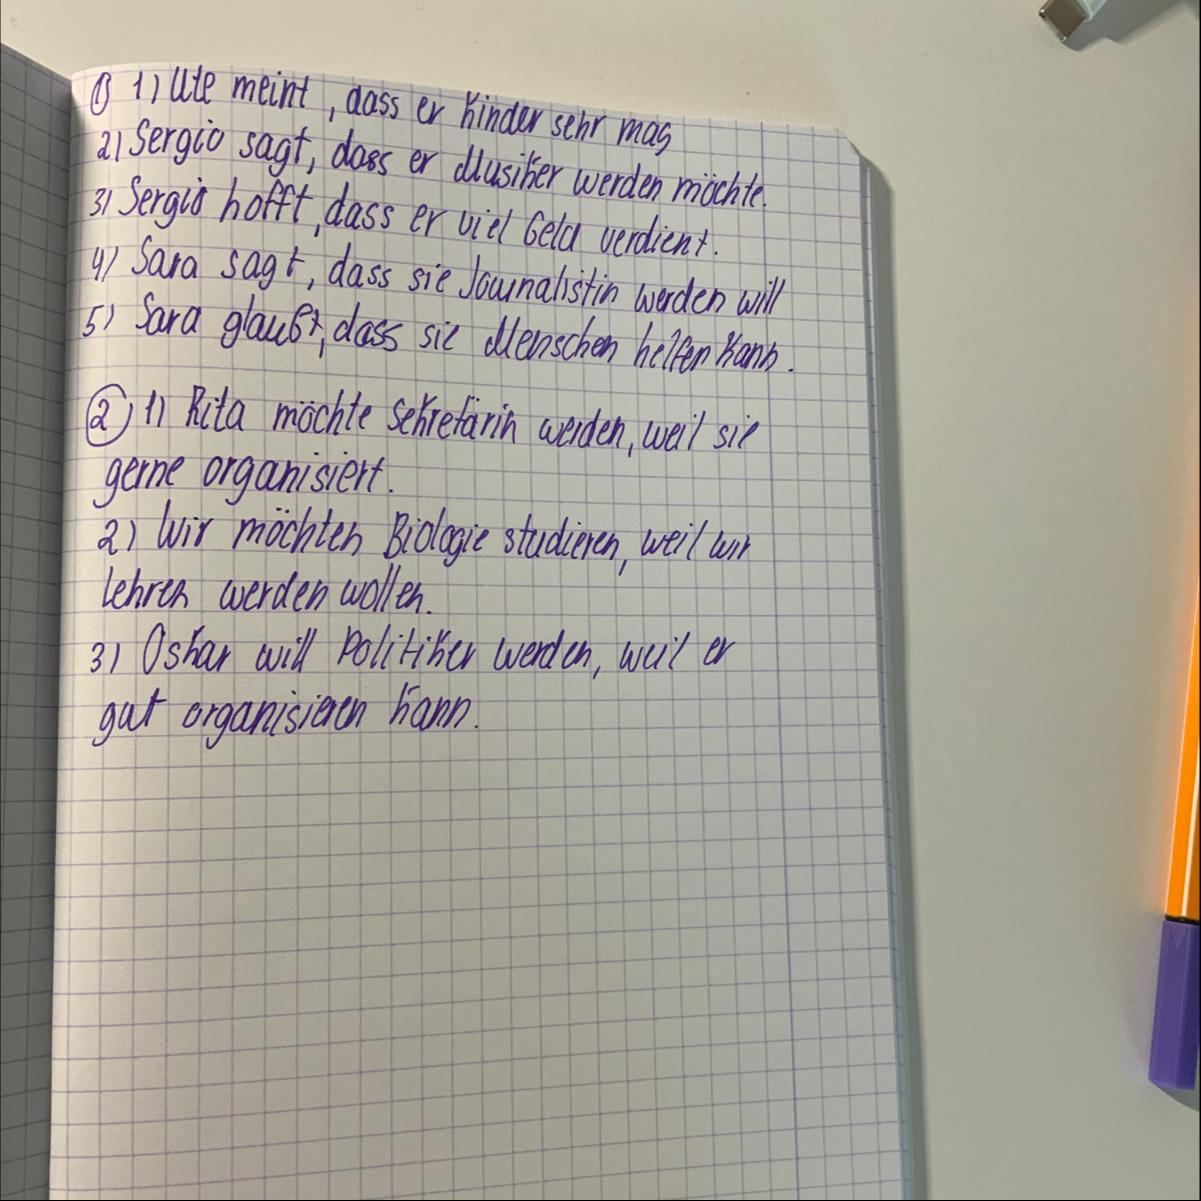 ① 1) Ute meint, dass er Kinder sehr mag
2) Sergio sagt, dass er Musiker werden möchte.
3) Sergio hofft, dass er viel Geld verdient.
4) Sara sagt, dass sie Journalistin werden will
5) Sara glaubt, dass sie Menschen helfen kann.
② 1) Rita möchte Sekretärin werden, weil sie
gerne organisiert.
2) Wir möchten Biologie studieren, weil wir
lehren werden wollen.
3) Oskar will Politiker werden, weil er
gut organisieren kann.